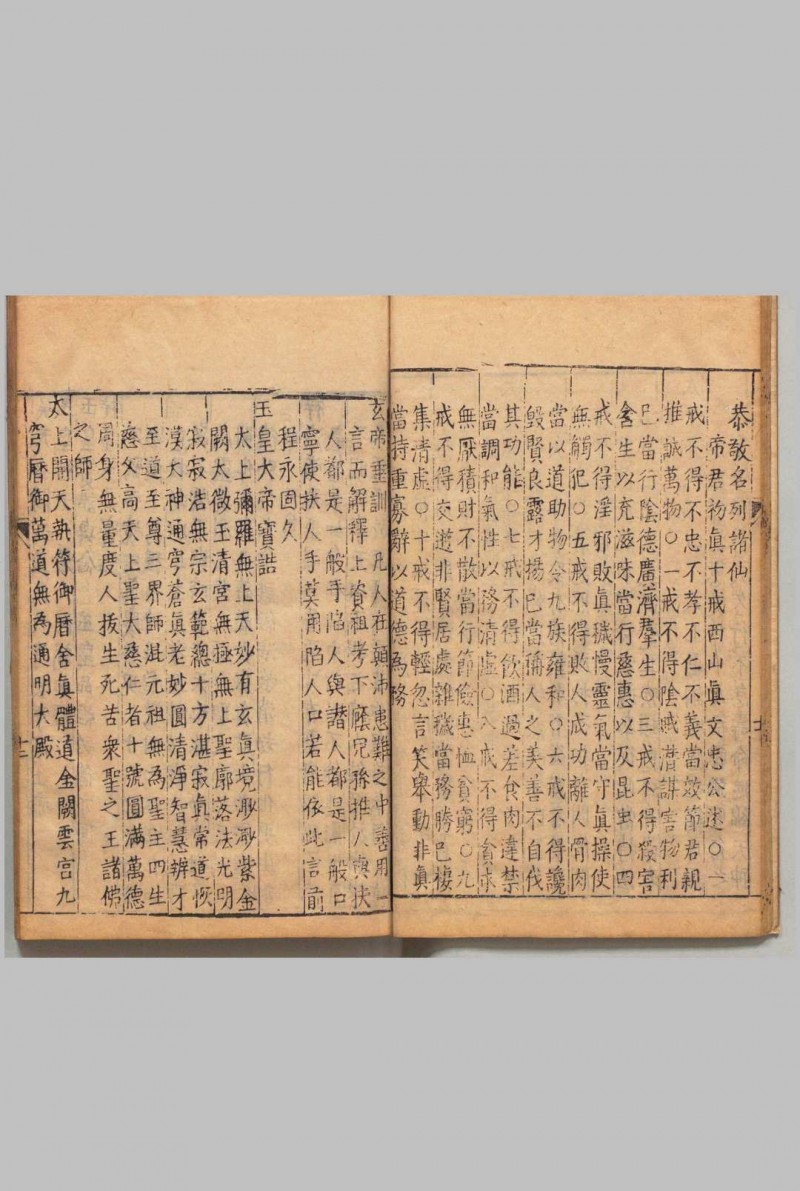 恭敬名列諸仙
帝君初眞十戒西山眞文忠公述○一
戒不得不忠不孝不仁不義當竭節君親
推誠萬物○二戒不得陰賊潛謀害物利
己當行陰德廣濟羣生○三戒不得殺害
含生以充滋味當行慈惠以及昆虫○四
戒不得淫邪敗眞穢慢靈氣當守眞操使
無觸犯○五戒不得敗人成功離人骨肉
當以道助物令九族雍和○六戒不得讒
毀賢良露才揚己當稱人之美善不自伐
其功能○七戒不得飮酒過差食肉違禁
當調和氣性以務清虛○八戒不得貪求
無厭積財不散當行節儉惠恤貧窮○九
戒不得交遊非賢居處雜穢當務勝己棲
集清虛○十戒不得輕忽言笑舉動非眞
當持重寡辭以道德為務
玄帝垂訓 凡人在顛沛患難之中善用一
言而解釋上資祖考下廕兒孫推人與扶
人都是一般手陷人與讚人都是一般口
寧使扶人手莫用陷人口若能依此言前
程永固久
玉皇大帝寶誥
太上彌羅無上天妙有玄眞境渺渺紫金
闕太微玉清宮無極無上聖廓落法光明
寂寂浩無宗玄範總十方湛寂眞常道恢
漠大神通穹蒼眞老妙圓清淨智慧辨才
至道至尊三界師混元祖無為聖主四生
慈父高天上聖大慈仁者十號圓滿萬德
周身無量度人拔生死苦衆聖之王諸佛
之師
太上開天執符御曆含眞體道金闕雲宮九
穹曆御萬道無為通明大殿